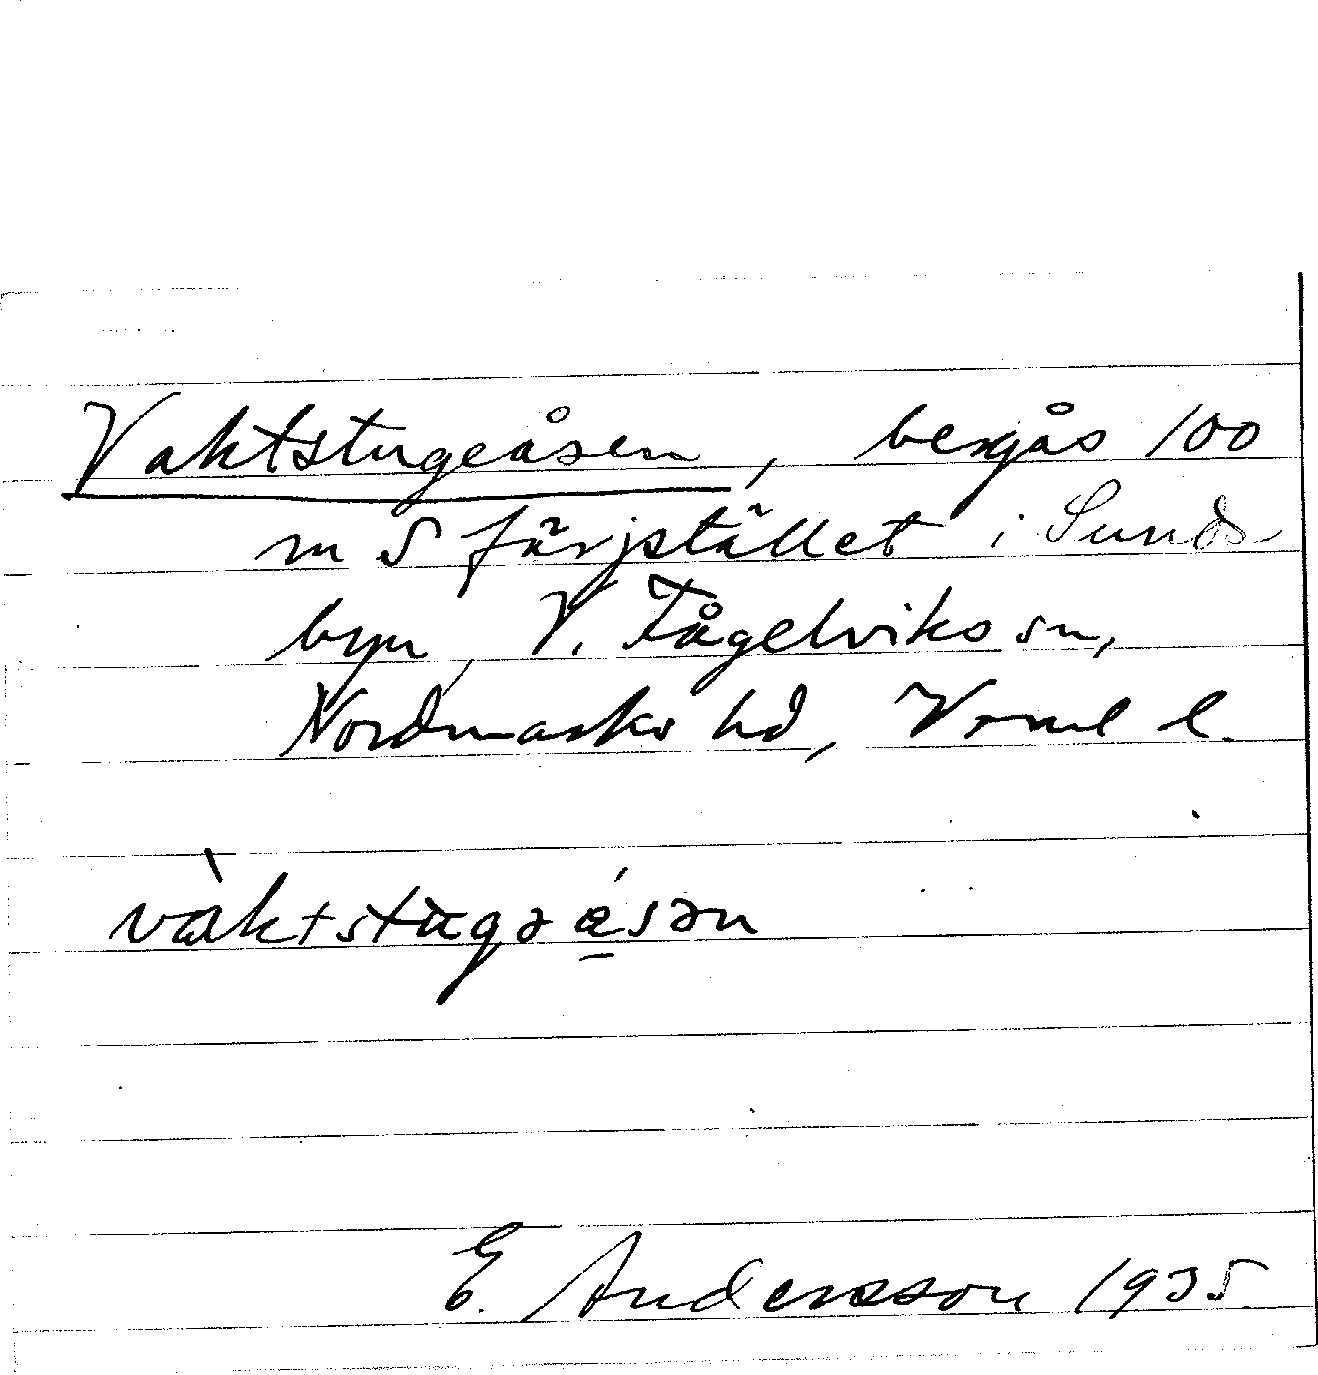 Vaktstugeåsen, bergås 100
m S färjstället i Sunds-
byn, V. Fågelviks sn,
Nordmarks hd, Vrml l.
vàktstugəåsən
E. Andersson 1935.